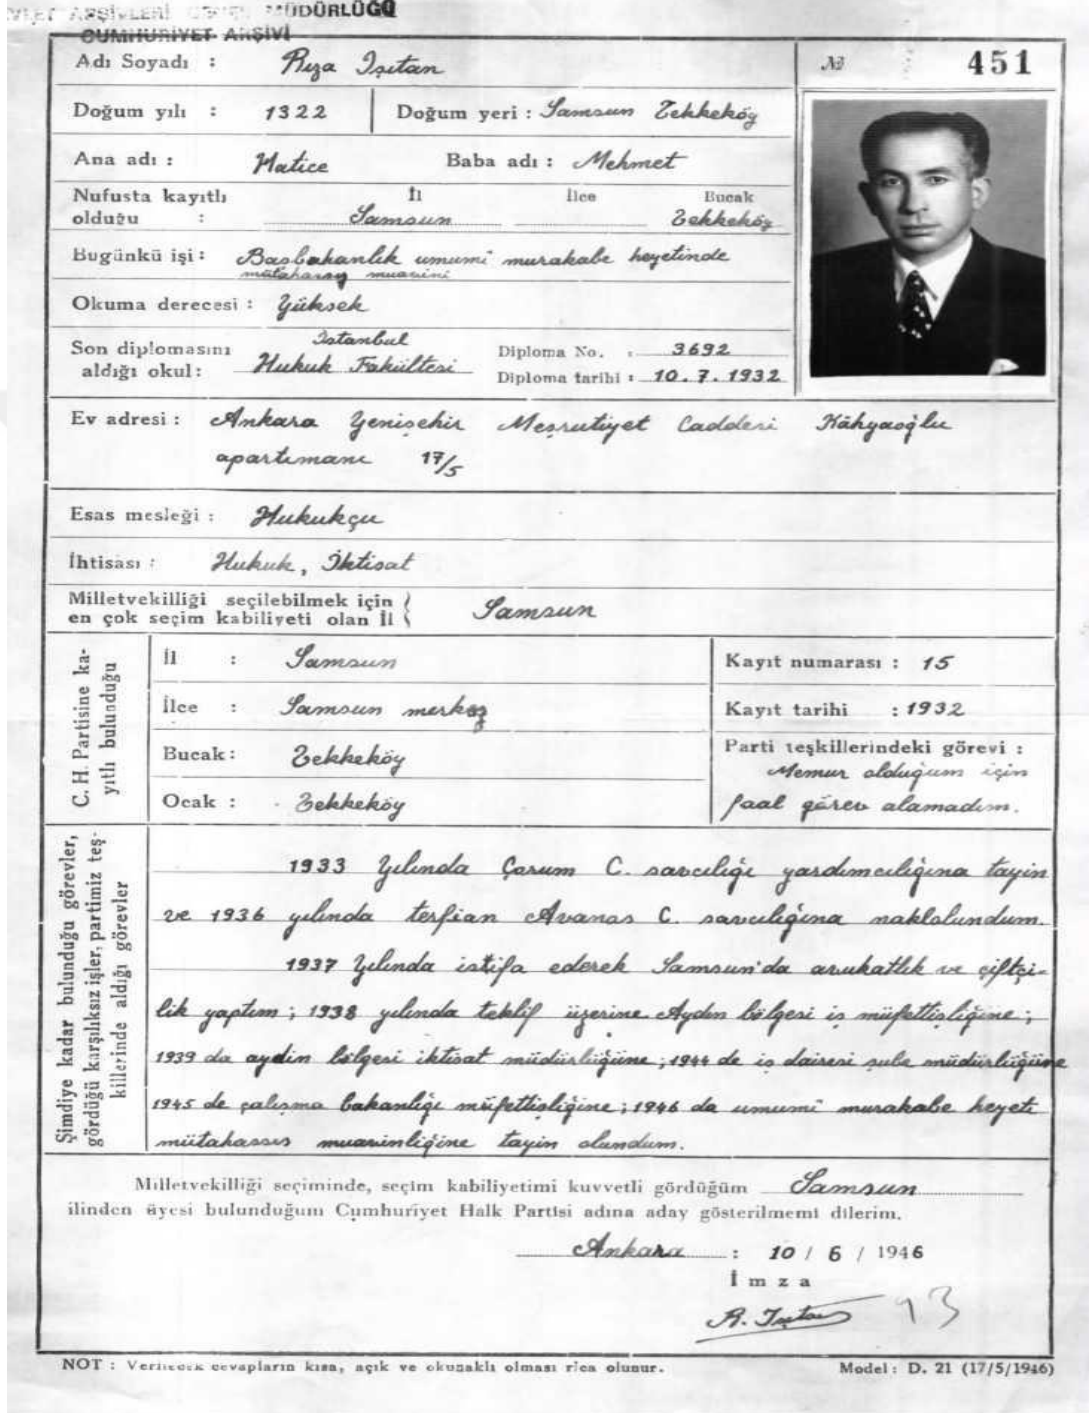 DEVLET ARŞİVLERİ GENEL MÜDÜRLÜĞÜ
CUMHURİYET ARŞİVİ
Adı Soyadı : Rıza Işıtan
№ 451
Doğum yılı : 1322 Doğum yeri : Samsun Tekkeköy
Ana adı : Hatice Baba adı : Mehmet
Nufusta kayıtlı İl İlce Bucak
olduğu : Samsun Tekkeköy
Bugünkü işi : Başbakanlık umumî murakabe heyetinde
mütahassıs muavini
Okuma derecesi : Yüksek
Son diplomasını İstanbul Diploma No. : 3692
aldığı okul : Hukuk Fakültesi Diploma tarihi : 10.7.1932
Ev adresi : Ankara Yenişehir Meşrutiyet Caddesi Kâhyaoğlu
apartımanı 17/5
Esas mesleği : Hukukçu
İhtisası : Hukuk, İktisat
Milletvekilliği seçilebilmek için
en çok seçim kabiliyeti olan İl Samsun
C. H. Partisine ka-
yıtlı bulunduğu
İl : Samsun
İlce : Samsun merkez
Bucak : Tekkeköy
Ocak : Tekkeköy
Kayıt numarası : 15
Kayıt tarihi : 1932
Parti teşkillerindeki görevi :
Memur olduğum için
faal görev alamadım.
Şimdiye kadar bulunduğu görevler,
gördüğü karşılıksız işler, partimiz teş-
killerinde aldığı görevler
1933 Yılında Çorum C. savcılığı yardımcılığına tayin
ve 1936 yılında terfian Avanos C. savcılığına naklolundum.
1937 Yılında istifa ederek Samsun'da avukatlık ve çiftçi-
lik yaptım ; 1938 yılında teklif üzerine Aydın bölgesi iş müfettişliğine ;
1939 da aydın bölgesi iktisat müdürlüğüne ; 1944 de iş dairesi şube müdürlüğüne
1945 de çalışma bakanlığı müfettişliğine ; 1946 da umumî murakabe heyeti
mütahassıs muavinliğine tayin olundum.
Milletvekilliği seçiminde, seçim kabiliyetimi kuvvetli gördüğüm Samsun
ilinden üyesi bulunduğum Cumhuriyet Halk Partisi adına aday gösterilmemi dilerim.
Ankara : 10 / 6 / 1946
İmza
R. Işıtan 93
NOT : Verilecek cevapların kısa, açık ve okunaklı olması rica olunur. Model : D. 21 (17/5/1946)